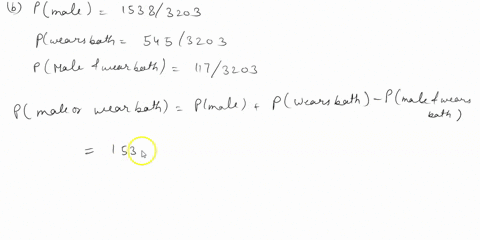 (b) P(male) = 1538/3203
P(wearsbath = 545/3203
P(Male & wear bath) = 117/3203
P(male or wear bath) = P(male) + P(wears bath) - P(male & wears bath)
= 153